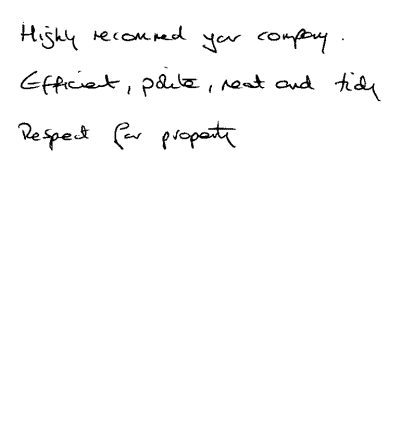 Highly recommend your company.
Efficient, polite, neat and tidy
Respect for property